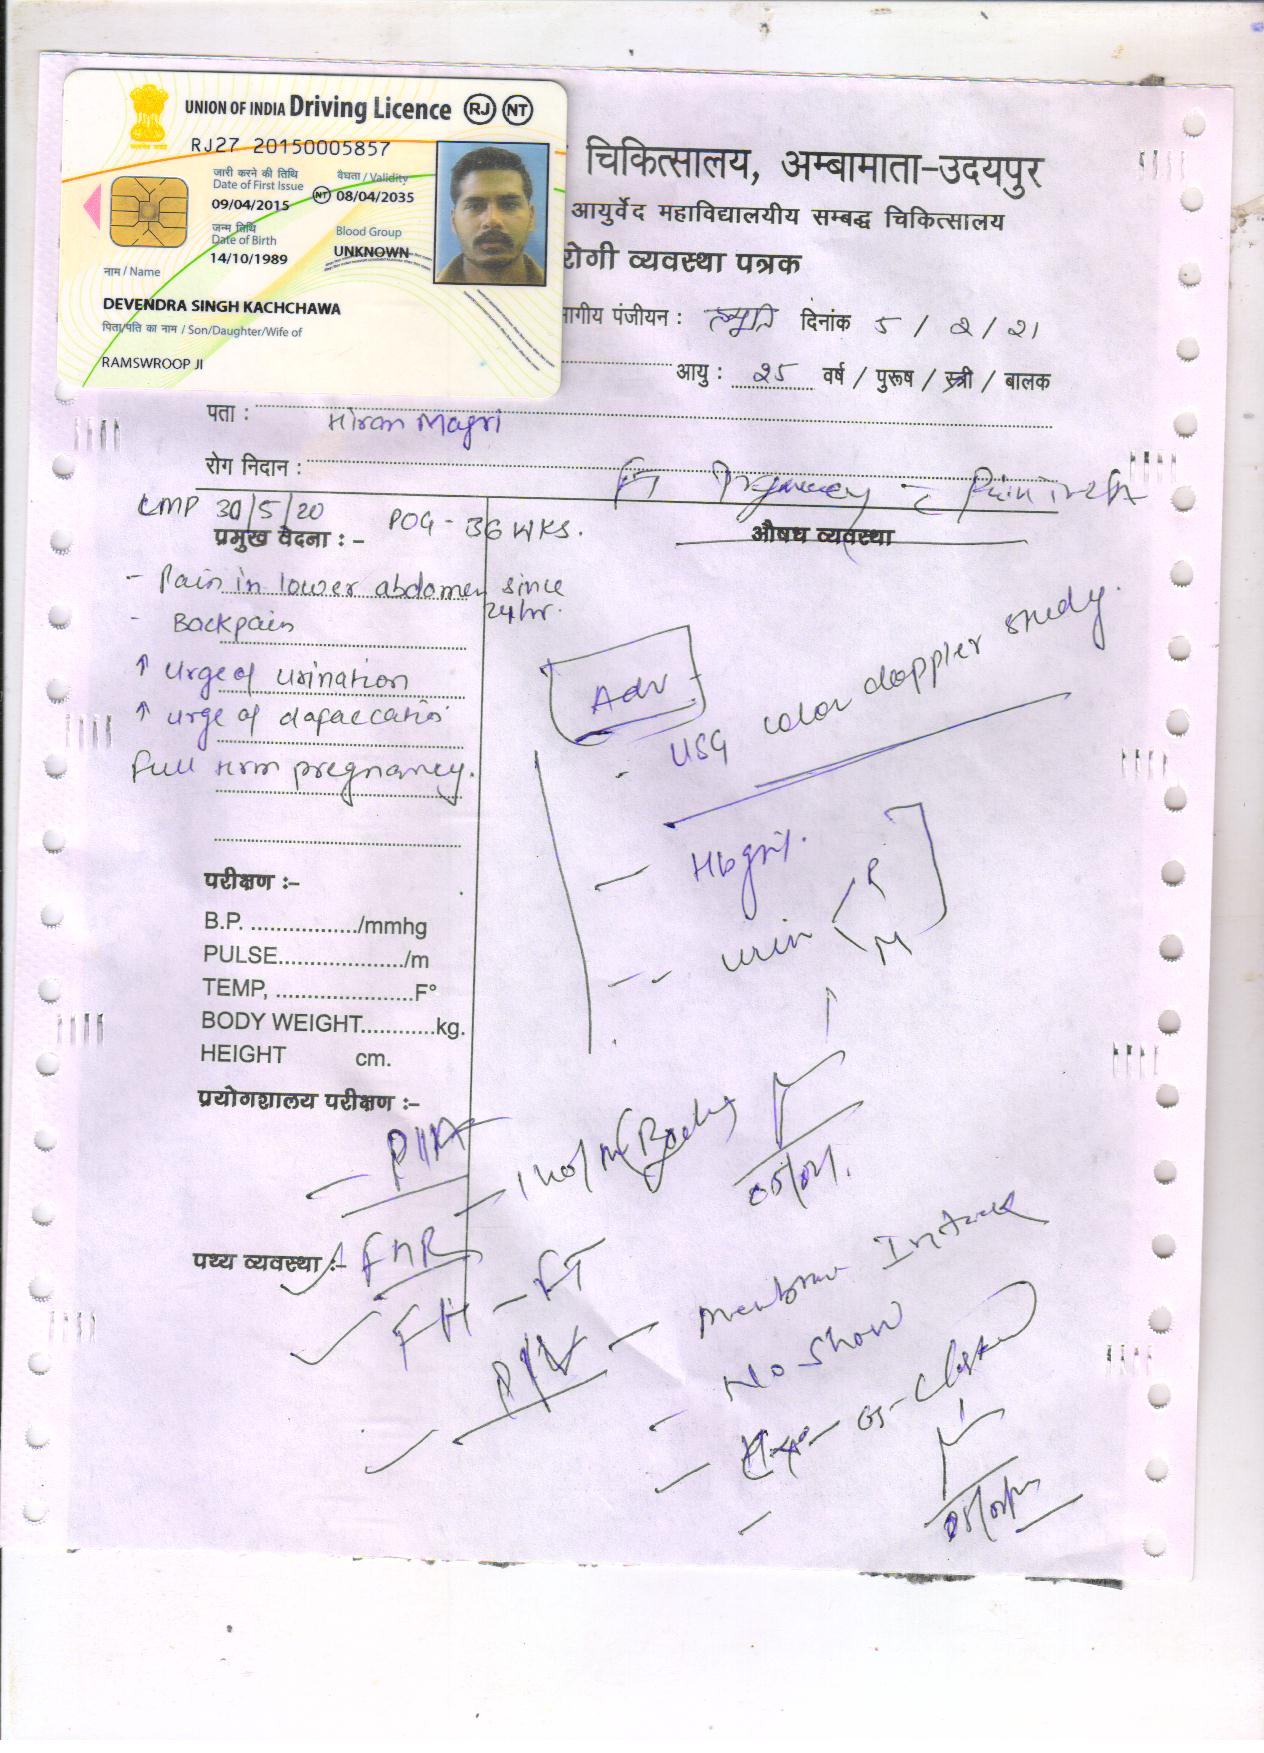 UNION OF INDIA Driving Licence RJ NT
RJ27 20150005857
जारी करने की तिथि
Date of First Issue
09/04/2015
वैधता / Validity
NT 08/04/2035
जन्म तिथि
Date of Birth
14/10/1989
Blood Group
UNKNOWN
नाम / Name
DEVENDRA SINGH KACHCHAWA
पिता/पति का नाम / Son/Daughter/Wife of
RAMSWROOP JI
चिकित्सालय, अम्बामाता-उदयपुर
आयुर्वेद महाविद्यालयीय सम्बद्ध चिकित्सालय
रोगी व्यवस्था पत्रक
पंजीयन : दिनांक 5 / 2 / 21
आयु : 25 वर्ष / पुरूष / स्त्री / बालक
पता : Hiran Magri
रोग निदान : FT Pregnancy Pain in
LMP 30/5/20 POG - 36 WKS.
प्रमुख वेदना : -
औषध व्यवस्था
- Pain in lower abdomen since 24hr.
- Backpain
↑ Urge of urination
↑ urge of dafaecation
full term pregnancy.
Adv
- USG color doppler study.
- Hbgm%.
-- urin R
M
परीक्षण :-
B.P. ................./mmhg
PULSE.................../m
TEMP, .....................F°
BODY WEIGHT...........kg.
HEIGHT cm.
प्रयोगशालय परीक्षण :-
- P/A
पथ्य व्यवस्था :-
FHR
FH - FT
P/V - Membrane Intact
- No show
- OS - closed